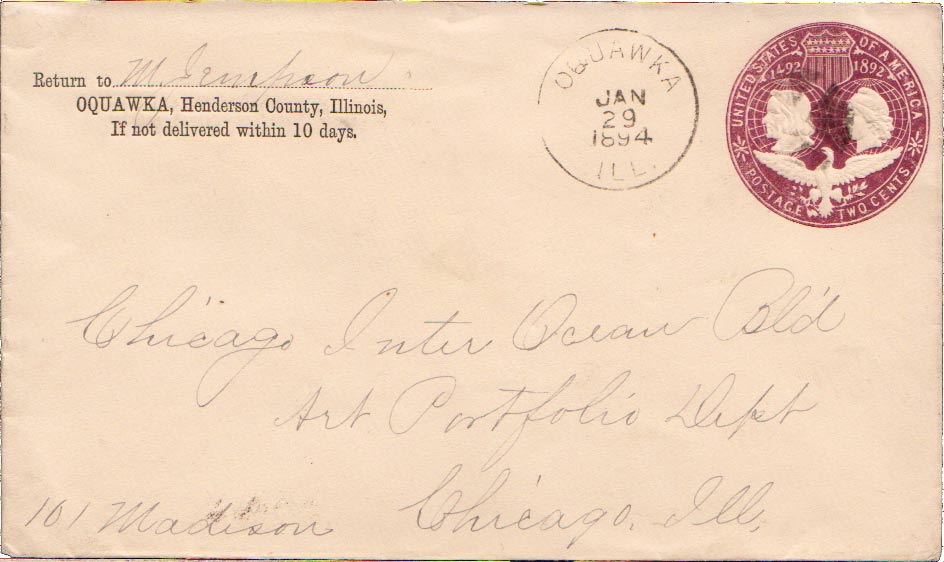 Return to M
OQUAWKA, Henderson County, Illinois,
If not delivered within 10 days.
OQUAWKA
JAN
29
1894
ILL.
UNITED STATES OF AMERICA
1492 1892
POSTAGE TWO CENTS.
Chicago Inter Ocean Bld
Art Portfolio Dept
Chicago, Ill,
101 Madison